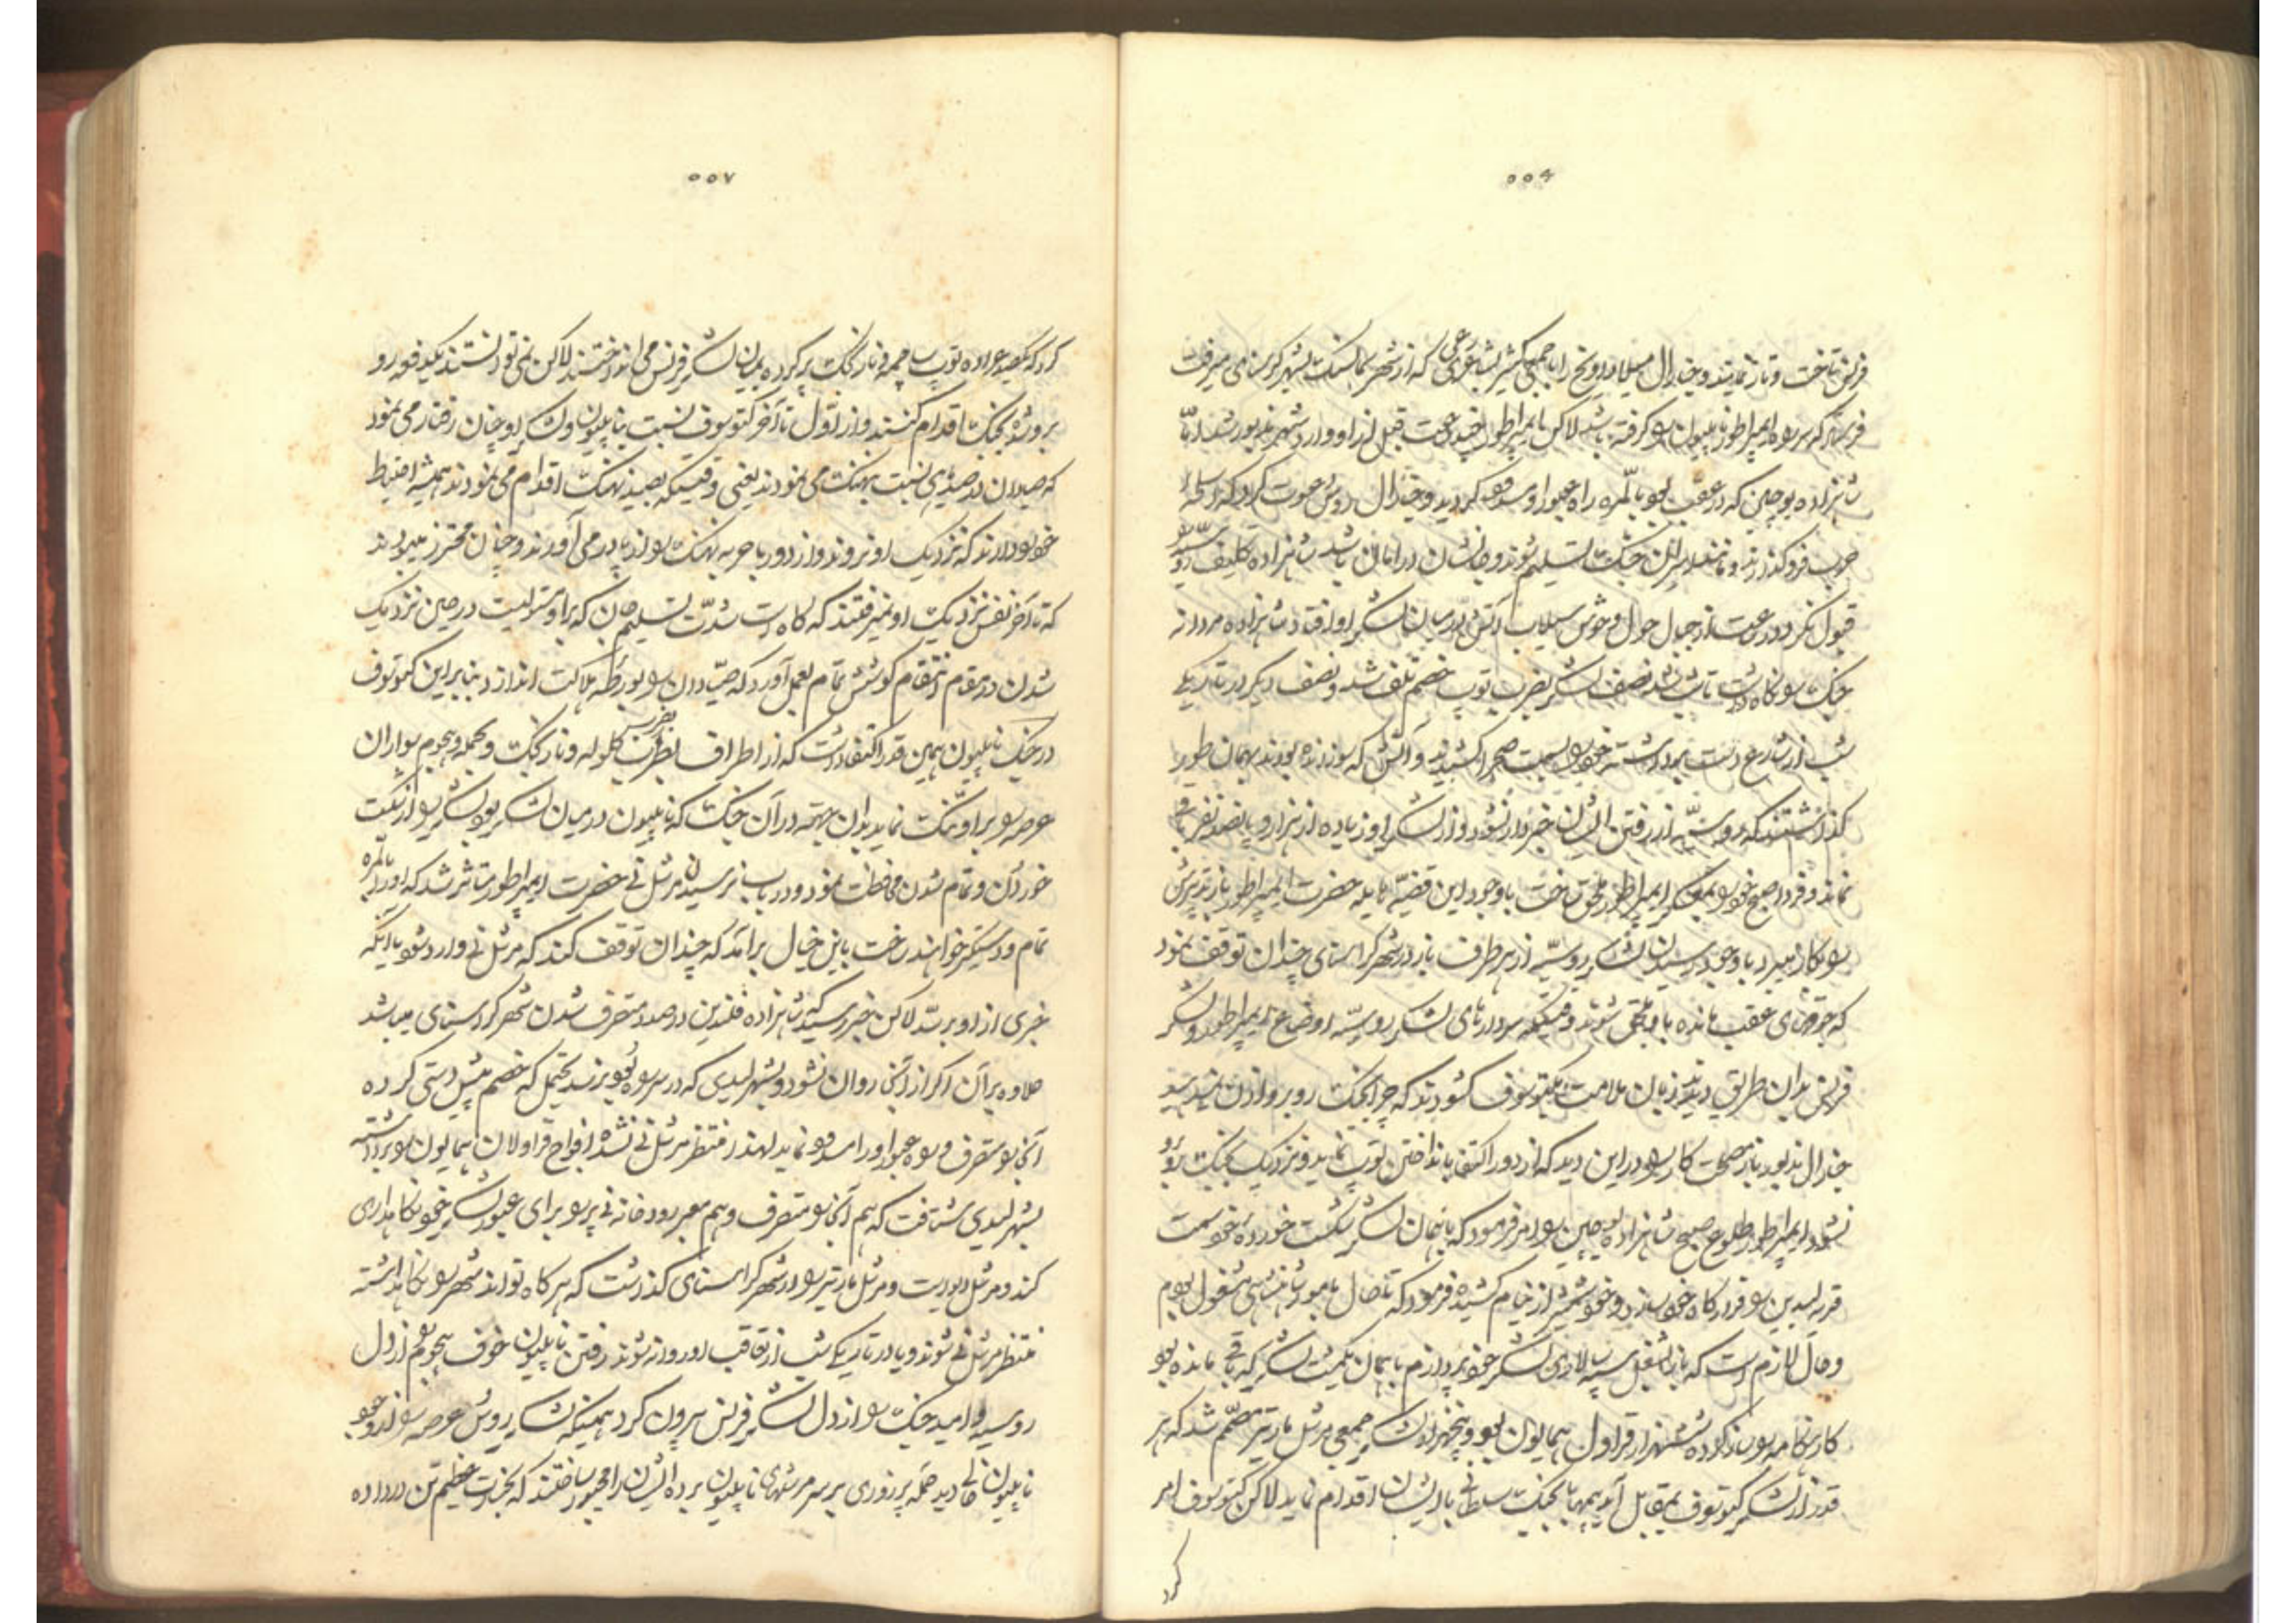 ۵۵۶
فرنس تاخت و تاز نمایند و جنرال میلارادویچ را با جمعی کثیر بشارعی که از شهر اسمالنسک بشهر کرسنای میرفت
فرستاد که سر راه ایمپراطور ناپلیون را گرفته باشد لاکن ایمپراطور قبل از او وارد شهر مزبور شد اما
شاهزاده یوجین که در عقب بود بالمره راه عبور او مسدود گردید و جنرال روس دعوت کرد که اسلحه
حرب فرو گذارند و مانند اسیران جنگ تسلیم شوند و جانشان در امان باشد شاهزاده تکلیف روسیه را
قبول نکرد و از جبال چون سیلاب آتش در میان لشکر او افتاد شاهزاده مردانه
جنگ را نگاه داشت تا شب شد نصف لشکر بضرب توپ خصم تلف شد و نصف دیگر در تاریکی
شب از شارع دست برداشته خود را بسمت صحرا کشیدند و آتش که سوزنده بودند بهمان طور
گذاشتند که روسیه از رفتن ایشان خبردار نشود و از لشکر او زیاده از هزار و پانصد نفر باقی
نماند و فردا صبح خود را بعسکر ایمپراطور ملحق ساخت با وجود این قضیه هایله حضرت ایمپراطور باز تدبیرش
را بکار میبرد با وجود رسیدن لشکر روسیه از هر طرف باز در شهر کراسنای چندان توقف نمود
که جوقهای عقب مانده باو ملحق شوند وقتیکه سردارهای لشکر روسیه اوضاع ایمپراطور و لشکر
فرنس بدان طریق دیدند زبان ملامت بکتوسوف گشودند که چرا بجنگ روبرو اذن نمیدهد
جنرال مزبور باز مصلحت کار را در این دید که از دور اکتفا بانداختن توپ نماید و نزدیک بجنگ روبرو
نشود ایمپراطور طلوع صبح شاهزاده یوجین را امر فرمود که با همان لشکر شکست خورده خود سمت
قریه لیدین را قرارگاه خود سازد و خود شمشیر از نیام کشیده فرمود که تا حال بامور شاهنشاهی مشغول بودم
و حال لازم است که باز بشغل سپه سالاری لشکر خود پردازم با همان کمیت لشکر که باقی مانده بود
کارنامه را ساز کرده ششهزار قراول همایون بود و پنجهزار لشکر جمعی مرشل مارتیر مصمم شد که هر
قدر از لشکر کتوسوف بمقابل آید همه را بجنگ سلطانی با ایشان اقدام نماید لاکن کتوسوف امر
کرد
۵۵۷
کرد که یکصد عراده توپ ساچمه و نارنجک پر کرده بمیان لشکر فرنس می انداختند لاکن نمی توانستند یکدفعه رو
برو شده بجنگ اقدام کنند و از اول تا آخر کتوسوف نسبت بناپلیون و لشکر او چنان رفتار می نمود
که صیادان در صیدی نسبت بنهنگ می نمودند یعنی وقتیکه بصید نهنگ اقدام می نمودند همیشه احتیاط
خود را دارند که نزدیک او نروند و از دور با حربه نهنگ را از پا در می آورند و چنان محترز میبودند
که تا آخر نفس نزدیک او نمیرفتند که گاه است شدت تسلیم جان که بر او مستولیست در حین نزدیک
شدن در مقام انتقام کوشش تمام بعمل آورد که صیادان را بورطه هلاکت اندازد بنابراین کتوسوف
در جنگ ناپلیون همین قدر اکتفا داشت که از اطراف بضرب گلوله و نارنجک و بحمله و هجوم سواران
عرصه را بر او تنگ نماید بدان جهته در آن جنگ که ناپلیون در میان لشکر بود لشکر را از شکست
خوردن و تمام شدن محافظت نمود و در باب نرسیدن مرشل نی حضرت ایمپراطور متاثر شد که او را بالمره
تمام و دستگیر خواهند ساخت باین خیال برآمد که چندان توقف کند که مرشل نی وارد شود یا اینکه
خبری از او برسد لاکن خبر رسید که شاهزاده غلندین در صدد متصرف شدن شهر کراسنای میباشد
علاوه بر آن اگر از آنجا روان نشود و بشهر لیدی که در سر راه بود نرسد یحتمل که خصم پیش دستی کرده
آنجا را متصرف و راه عبور او را مسدود نماید لهذا منتظر مرشل نی نشده افواج قراولان همایون را برداشته
بشهر لیدی شتافت که هم آنجا را متصرف و هم معبر رودخانه نی پر را برای عبور لشکر خود نگاهداری
کند و مرشل داوست و مرشل مارتیر را در شهر کراسنای گذاشت که هر گاه توانند شهر را نگاهداشته
منتظر مرشل نی شوند و یا در تاریکی شب از تعاقب او روانه شوند رفتن ناپلیون خوف هجوم از دل
روسیه و امید جنگ را از دل لشکر فرنس بیرون کرد همینکه لشکر روس عرصه را از وجود
ناپلیون خالی دید حمله پر زوری بر سر مرشلهای ناپلیون برده ایشان را مجبور ساختند که بخسارت عظیم تن در داده